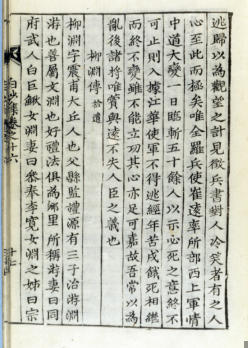 逃歸以爲觀望之計見徵兵書對人冷笑者有之人
心至此而極矣唯全羅兵使崔遠率所部西上軍情
中道大變一日臨斬五十餘人以示必死之意終不
可止則入據江華使軍不得逃經年苦戍餓死相繼
而終不變雖不能立功其心亦足可嘉故吾常以爲
亂後諸將唯賓與遠不失人臣之義也
柳淵傳 拾遺
柳淵字震甫大丘人也父縣監禮源有三子治游淵
游也善屬文淵也好禮法俱爲鄕里所稱游妻曰同
府武人白巨鰍女淵妻曰參奉李寬女淵之姊曰宗
白沙集卷之十六
十七